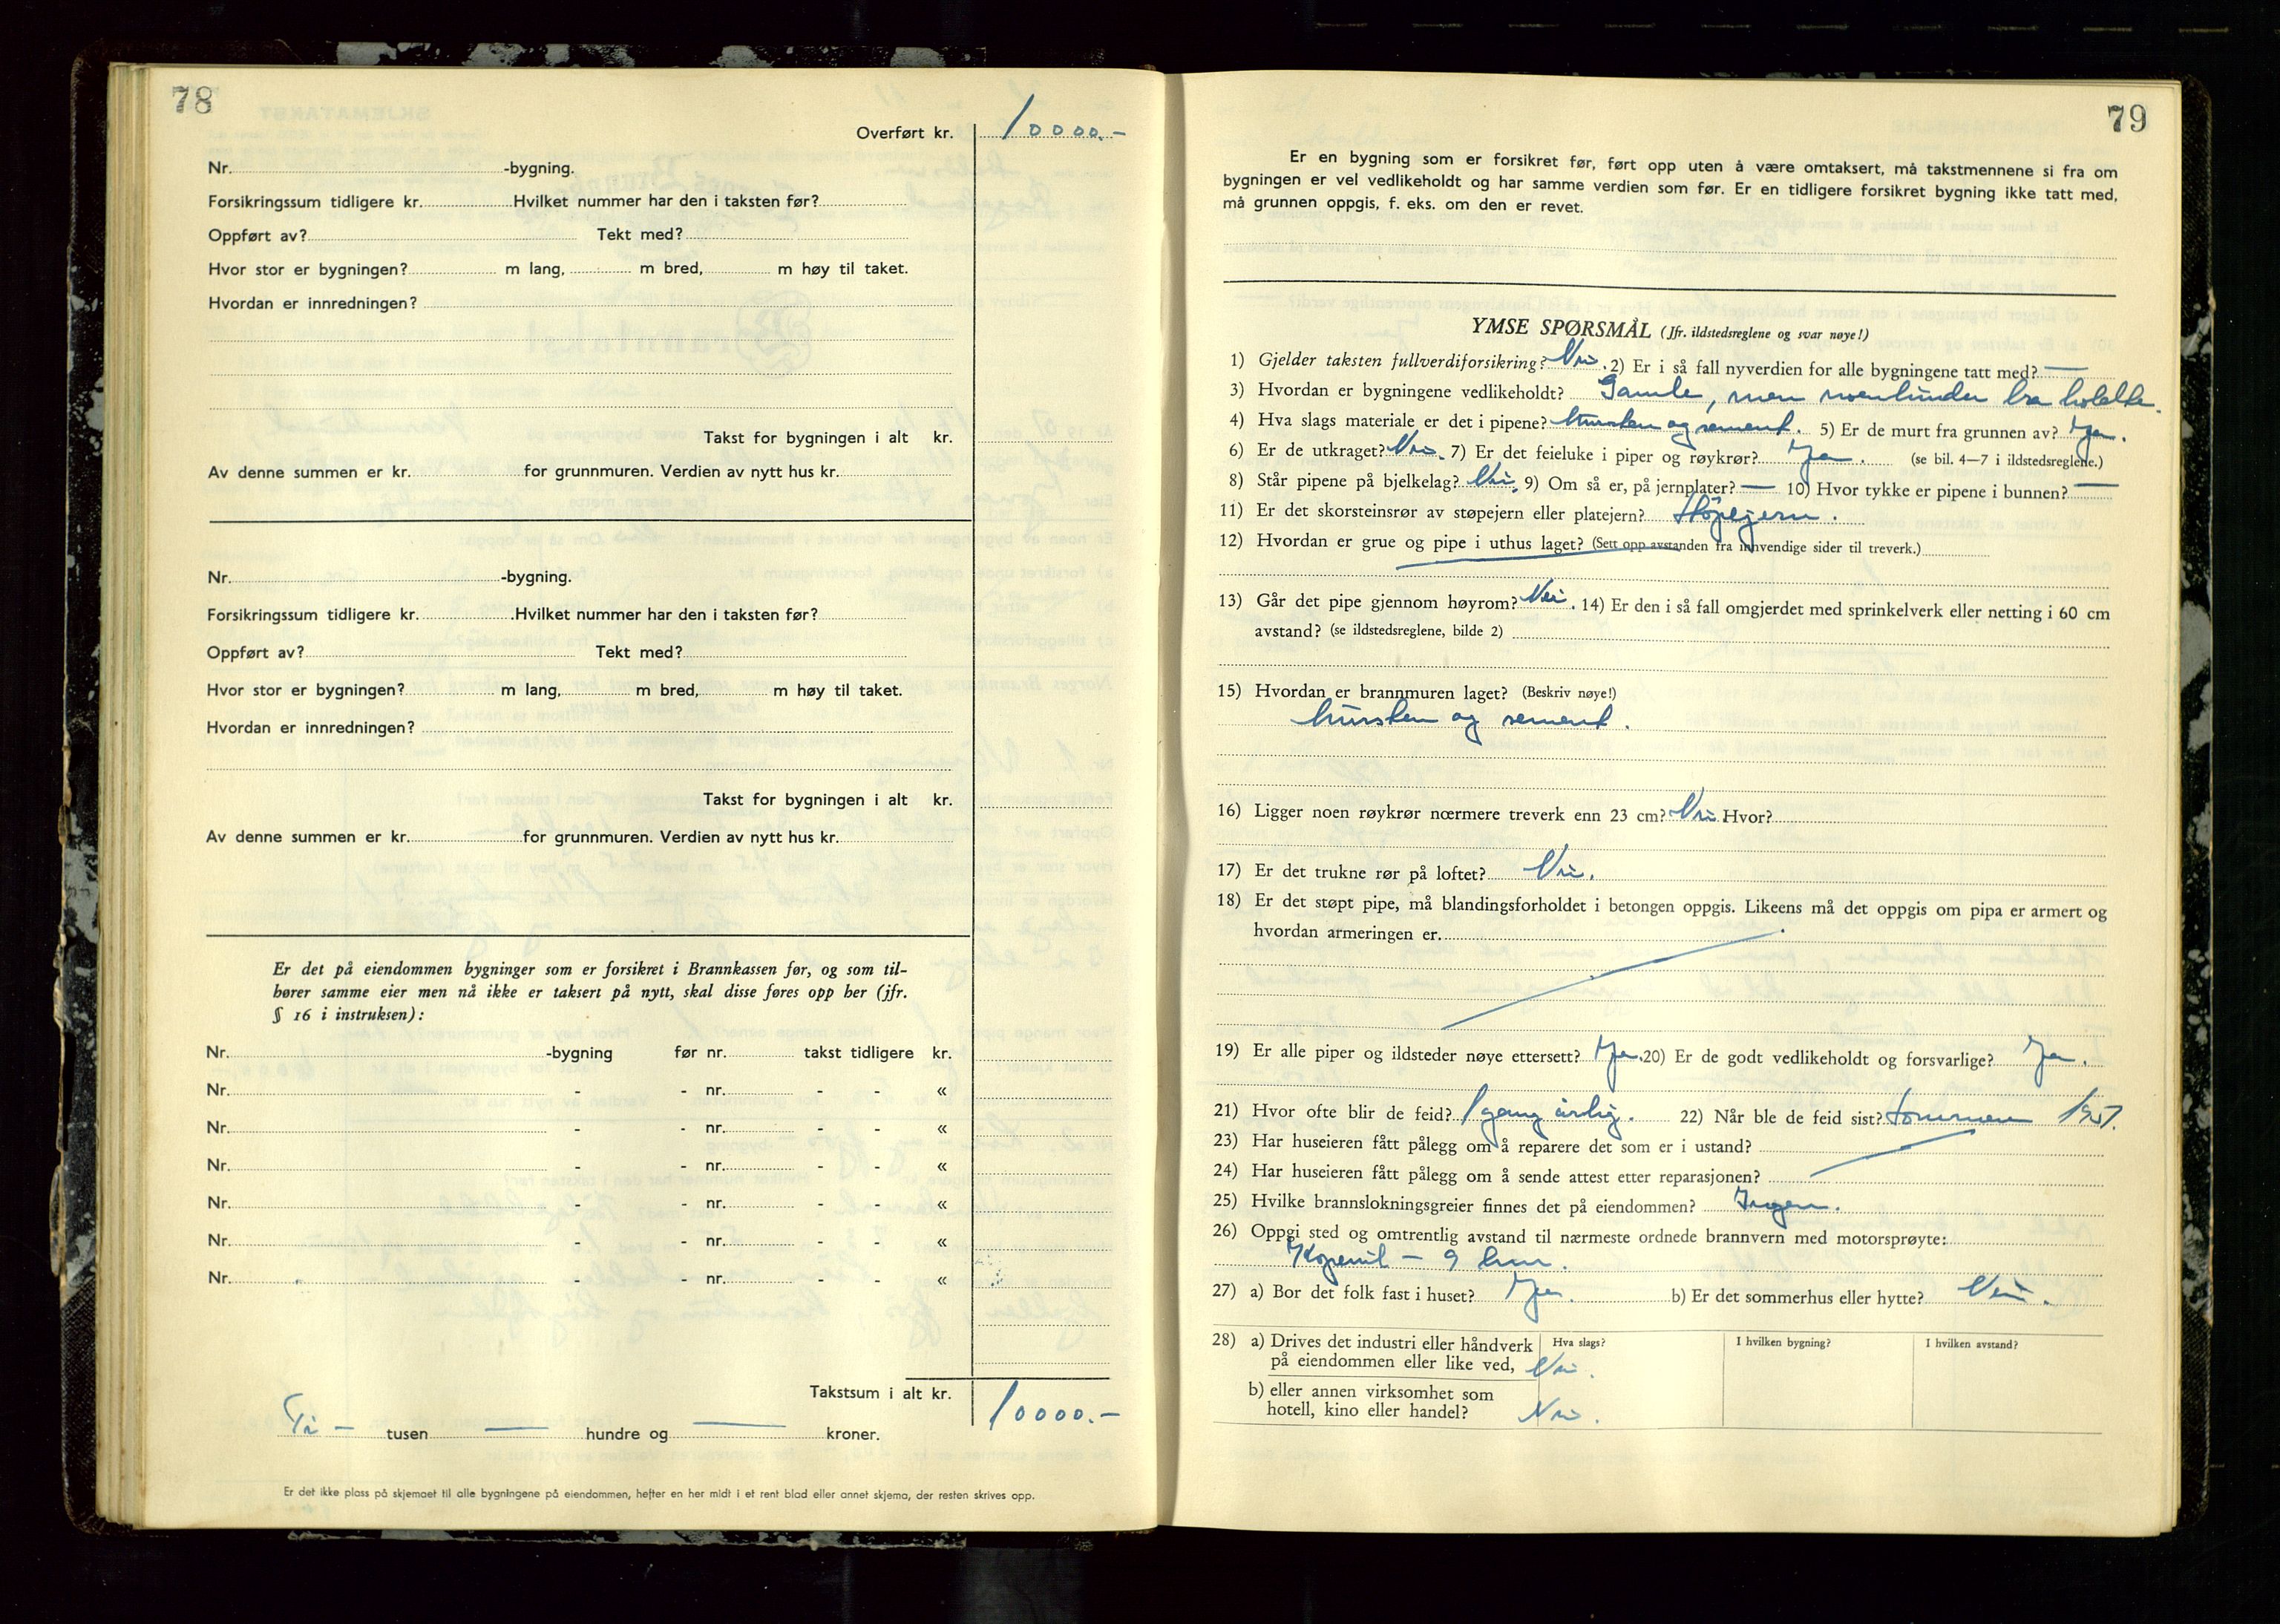 78
Overført kr. 10000.-
Nr. -bygning.
Forsikringssum tidligere kr. Hvilket nummer har den i taksten før?
Oppført av? Tekt med?
Hvor stor er bygningen? m lang, m bred, m høy til taket.
Hvordan er innredningen?
Takst for bygningen i alt kr.
Av denne summen er kr. for grunnmuren. Verdien av nytt hus kr.
Nr. -bygning.
Forsikringssum tidligere kr. Hvilket nummer har den i taksten før?
Oppført av? Tekt med?
Hvor stor er bygningen? m lang, m bred, m høy til taket.
Hvordan er innredningen?
Takst for bygningen i alt kr.
Av denne summen er kr. for grunnmuren. Verdien av nytt hus kr.
Er det på eiendommen bygninger som er forsikret i Brannkassen før, og som til-
hører samme eier men nå ikke er taksert på nytt, skal disse føres opp her (jfr.
§ 16 i instruksen):
Nr. -bygning før nr. takst tidligere kr.
Nr. - - nr. - - «
Nr. - - nr. - - «
Nr. - - nr. - - «
Nr. - - nr. - - «
Nr. - - nr. - - «
Nr. - - nr. - - «
Takstsum i alt kr. 10000.-
Ti - tusen — hundre og — kroner.
Er det ikke plass på skjemaet til alle bygningene på eiendommen, hefter en her midt i et rent blad eller annet skjema, der resten skrives opp.
79
Er en bygning som er forsikret før, ført opp uten å være omtaksert, må takstmennene si fra om
bygningen er vel vedlikeholdt og har samme verdien som før. Er en tidligere forsikret bygning ikke tatt med,
må grunnen oppgis, f. eks. om den er revet.
YMSE SPØRSMÅL (Jfr. ildstedsreglene og svar nøye!)
1) Gjelder taksten fullverdiforsikring? Nei. 2) Er i så fall nyverdien for alle bygningene tatt med? —
3) Hvordan er bygningene vedlikeholdt? Gamle, men noenlunde bra holdt.
4) Hva slags materiale er det i pipene? Mursten og sement. 5) Er de murt fra grunnen av? Ja.
6) Er de utkraget? Nei. 7) Er det feieluke i piper og røykrør? Ja. (se bil. 4—7 i ildstedsreglene.)
8) Står pipene på bjelkelag? Nei. 9) Om så er, på jernplater? — 10) Hvor tykke er pipene i bunnen? —
11) Er det skorsteinsrør av støpejern eller platejern? Støpejern.
12) Hvordan er grue og pipe i uthus laget? (Sett opp avstanden fra innvendige sider til treverk.)
13) Går det pipe gjennom høyrom? Nei. 14) Er den i så fall omgjerdet med sprinkelverk eller netting i 60 cm
avstand? (se ildstedsreglene, bilde 2)
15) Hvordan er brannmuren laget? (Beskriv nøye!)
Mursten og sement.
16) Ligger noen røykrør nærmere treverk enn 23 cm? Nei. Hvor?
17) Er det trukne rør på loftet? Nei.
18) Er det støpt pipe, må blandingsforholdet i betongen oppgis. Likeens må det oppgis om pipa er armert og
hvordan armeringen er.
19) Er alle piper og ildsteder nøye ettersett? Ja. 20) Er de godt vedlikeholdt og forsvarlige? Ja.
21) Hvor ofte blir de feid? 1 gang årlig. 22) Når ble de feid sist? Sommeren 1951.
23) Har huseieren fått pålegg om å reparere det som er i ustand?
24) Har huseieren fått pålegg om å sende attest etter reparasjonen?
25) Hvilke brannslokningsgreier finnes det på eiendommen? Ingen.
26) Oppgi sted og omtrentlig avstand til nærmeste ordnede brannvern med motorsprøyte:
Kopervik - 9 km.
27) a) Bor det folk fast i huset? Ja. b) Er det sommerhus eller hytte? Nei.
28) a) Drives det industri eller håndverk Hva slags? I hvilken bygning? I hvilken avstand?
på eiendommen eller like ved, Nei.
b) eller annen virksomhet som
hotell, kino eller handel? Nei.